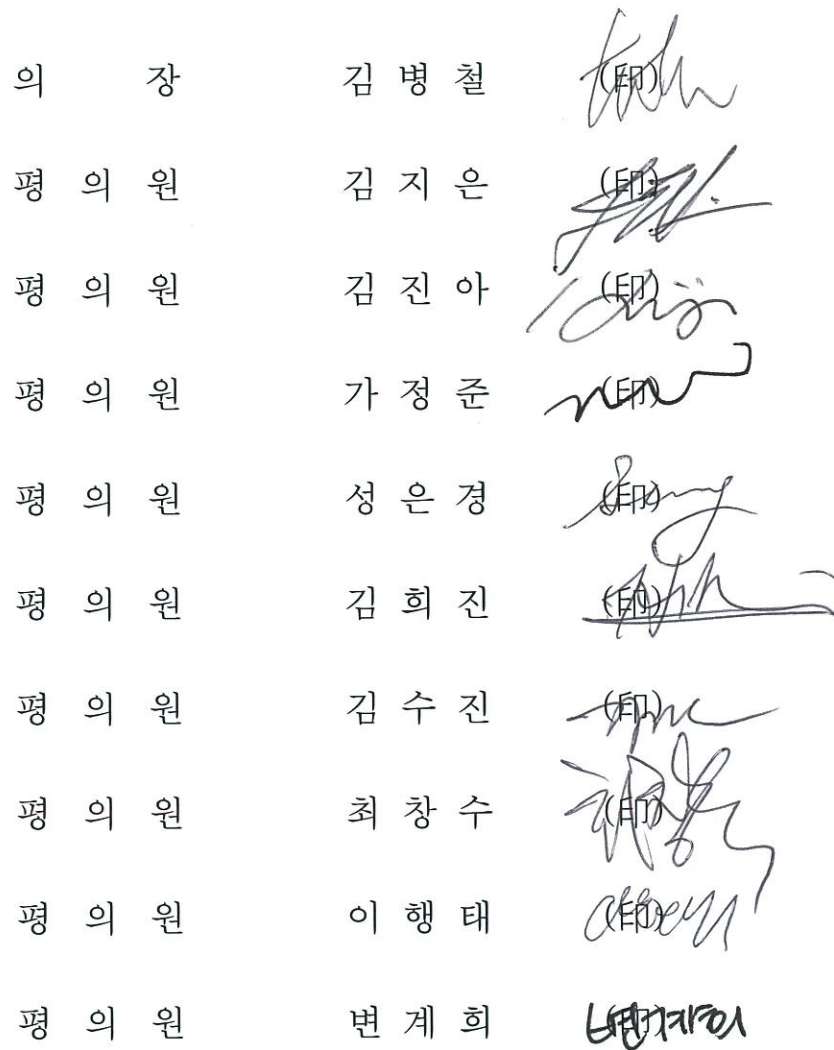 의 장 김 병 철 (印)
평 의 원 김 지 은 (印)
평 의 원 김 진 아 (印)
평 의 원 가 정 준 (印)
평 의 원 성 은 경 (印)
평 의 원 김 희 진 (印)
평 의 원 김 수 진 (印)
평 의 원 최 창 수 (印)
평 의 원 이 행 태 (印)
평 의 원 변 계 희 (印) 변계희